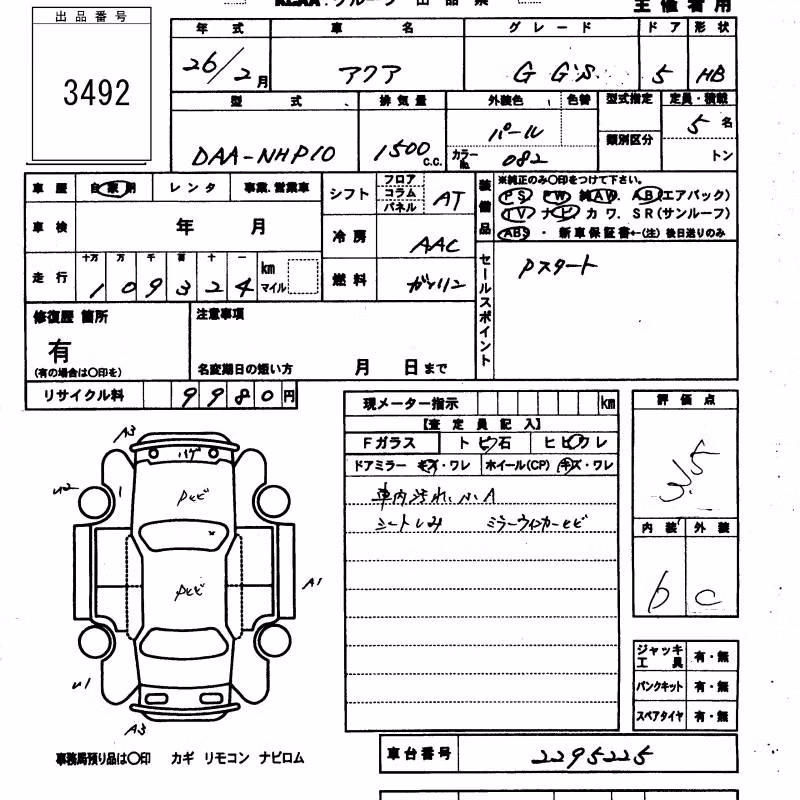 KCAA・グループ 出品票 主催者用
出品番号
3492
年式 車名 グレード ドア 形状
26/2月 アクア G G's 5 HB
型式 排気量 外装色 色替 型式指定 定員・積載
DAA-NHP10 1500c.c. パール 5名
カラーNo. 082 類別区分 トン
車歴 自家用 レンタ 事業・営業車
シフト フロア コラム パネル AT
車検 年 月
冷房 AAC
走行 十万 万 千 百 十 一 km マイル
109324
燃料 ガソリン
装備品
※純正のみ〇印をつけて下さい。
PS PW 純AW. AB(エアバック)
TV ナビ カワ. SR(サンルーフ)
ABS ・ 新車保証書←(注) 後日送りのみ
セールスポイント
Pスタート
修復歴 箇所
有
(有の場合は〇印を)
注意事項
名変期日の短い方 月 日まで
リサイクル料 9980円
現メーター指示 km
【査定員記入】
Fガラス トビ石 ヒビワレ
ドアミラー キズ・ワレ ホイール(CP) キズ・ワレ
車内汚れ、ハ.A
シートしみ ミラーウィンカーヒビ
評価点
3.5
内装 外装
b c
A3
ハゲ
Pヒビ
Pヒビ
A1
A3
ジャッキ工具 有・無
パンクキット 有・無
スペアタイヤ 有・無
事務局預り品は〇印 カギ リモコン ナビロム
車台番号 2295225